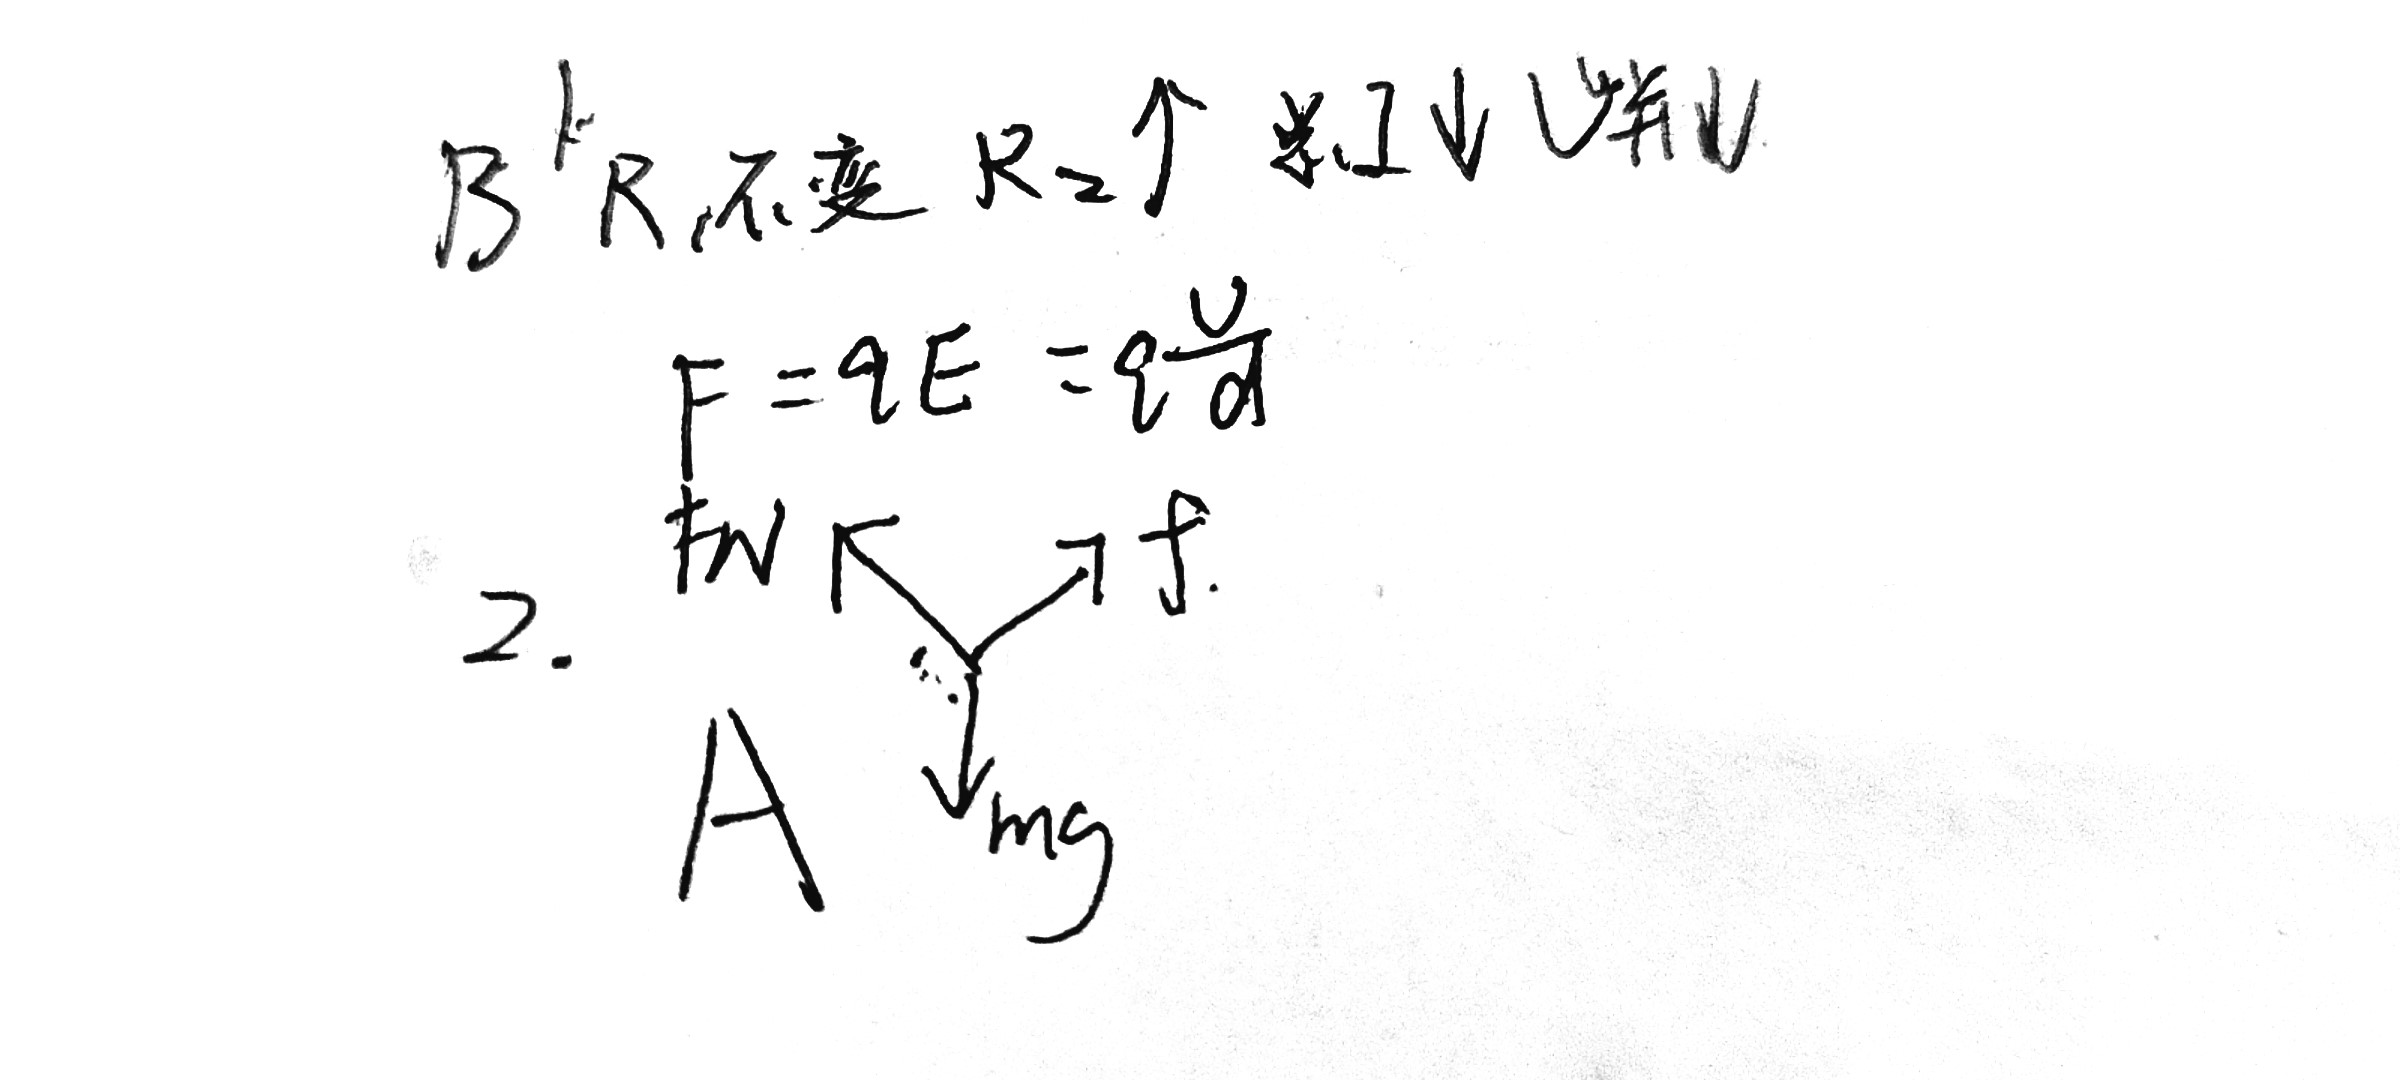 B R₁不变 R₂↑ 总I↓ U并↓
F = qE = q U/d
FN f.
2.
A mg